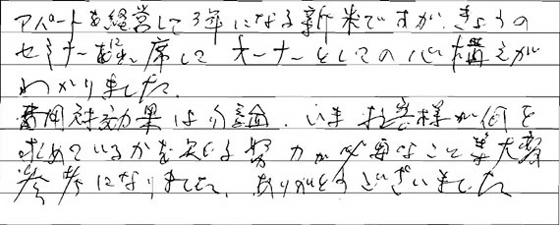 アパートを経営して3年になる新米ですが、きょうの
セミナーに出席して オーナーとしての心構えが
わかりました。
費用対効果は勿論、いま お客様が何を
求めているかを知る努力が必要なこと 大変
参考になりました。ありがとうございました